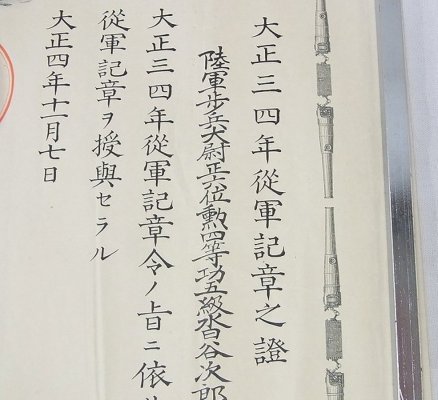 大正三四年從軍記章之證
陸軍歩兵大尉正六位勲四等功五級水谷次郎
大正三四年從軍記章令ノ旨ニ依
從軍記章ヲ授與セラル
大正四年十一月七日